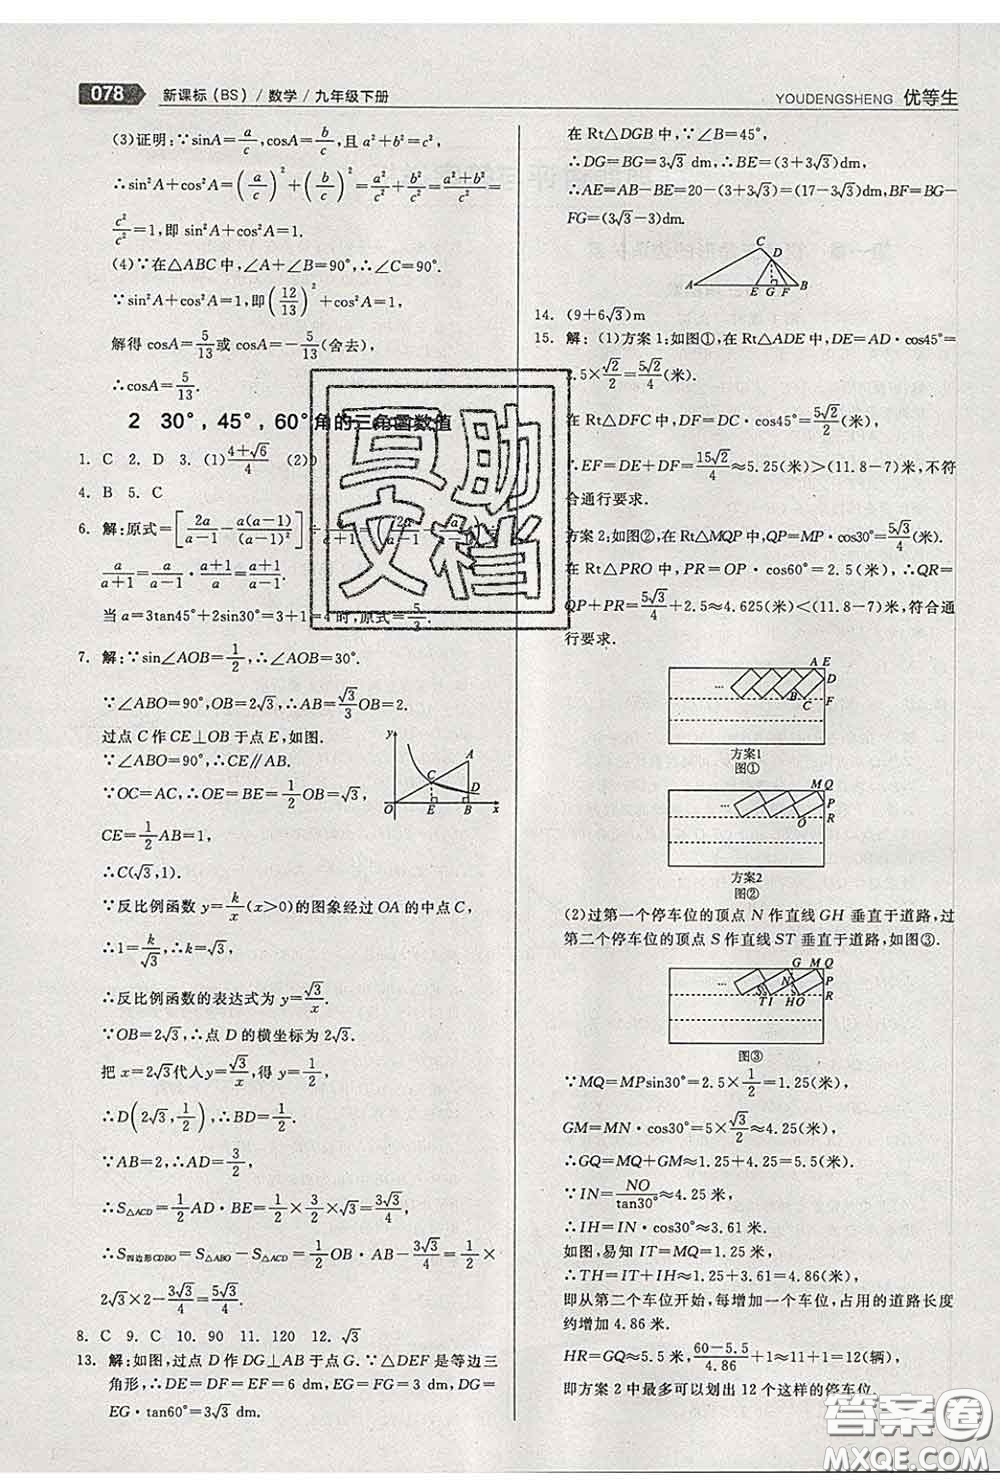 078 新课标(BS)/数学/九年级下册
YOUDENGSHENG 优等生
(3)证明:∵sinA=a/c,cosA=b/c,且a²+b²=c²,
∴sin²A+cos²A=(a/c)²+(b/c)²=a²/c²+b²/c²=(a²+b²)/c²=
c²/c²=1,即 sin²A+cos²A=1.
(4)∵在△ABC中,∠A+∠B=90°,∴∠C=90°.
∵sin²A+cos²A=1,即(12/13)²+cos²A=1,
解得 cosA=5/13或 cosA=-5/13(舍去),
∴cosA=5/13.
2 30°,45°,60°角的三角函数值
1. C 2. D 3. (1)(4+√6)/4 (2)0
4. B 5. C
6. 解:原式=[2a/(a-1)-a(a-1)/(a-1)²]
a/(a+1)=a/(a-1)·(a+1)/a=(a+1)/(a-1).
当 a=3tan45°+2sin30°=3+1=4时,原式=5/3.
7. 解:∵sin∠AOB=1/2,∴∠AOB=30°.
∵∠ABO=90°,OB=2√3,∴AB=√3/3 OB=2.
过点 C 作 CE⊥OB 于点 E,如图.
∵∠ABO=90°,∴CE∥AB.
∵OC=AC,∴OE=BE=1/2 OB=√3,
CE=1/2 AB=1,
∴C(√3,1).
y A C D O E B x
∵反比例函数 y=k/x(x>0)的图象经过 OA 的中点 C,
∴1=k/√3,∴k=√3,
∴反比例函数的表达式为 y=√3/x.
∵OB=2√3,∴点 D 的横坐标为 2√3.
把 x=2√3代入y=√3/x,得 y=1/2,
∴D(2√3,1/2),∴BD=1/2.
∵AB=2,∴AD=3/2,
∴S△ACD=1/2 AD·BE=1/2×3/2×√3=3√3/4,
∴S四边形CDBO=S△ABO-S△ACD=1/2 OB·AB-3√3/4=1/2×
2√3×2-3√3/4=5√3/4.
8. C 9. C 10. 90 11. 120 12. √3
13. 解:如图,过点 D 作 DG⊥AB 于点 G.∵△DEF 是等边三
角形,∴DE=DF=EF=6 dm,EG=FG=3 dm,DG=
EG·tan60°=3√3 dm.
在 Rt△DGB 中,∵∠B=45°,
∴DG=BG=3√3 dm,∴BE=(3+3√3)dm,
∴AE=AB-BE=20-(3+3√3)=(17-3√3)dm,BF=BG-
FG=(3√3-3)dm.
C D A E G F B
14. (9+6√3)m
15. 解:(1)方案1:如图①,在 Rt△ADE 中,DE=AD·cos45°=
2.5×√2/2=5√2/4(米).
在 Rt△DFC 中,DF=DC·cos45°=5√2/2(米),
∴EF=DE+DF=15√2/4≈5.25(米)>(11.8-7)米,不符
合通行要求.
方案2:如图②,在 Rt△MQP 中,QP=MP·cos30°=5√3/4(米).
在 Rt△PRO 中,PR=OP·cos60°=2.5(米),∴QR=
QP+PR=5√3/4+2.5≈4.625(米)<(11.8-7)米,符合通
行要求.
A E D B C F
方案1
图①
M Q P O R
方案2
图②
(2)过第一个停车位的顶点 N 作直线 GH 垂直于道路,过
第二个停车位的顶点 S 作直线 ST 垂直于道路,如图③.
G M Q S N P T I H O R
图③
∵MQ=MPsin30°=2.5×1/2=1.25(米),
GM=MN·cos30°=5×√3/2≈4.25(米),
∴GQ=MQ+GM≈1.25+4.25=5.5(米).
∵IN=NO/tan30°≈4.25(米),
∴IH=IN·cos30°≈3.61(米).
如图,易知 IT=MQ=1.25(米),
∴TH=IT+IH=1.25+3.61=4.86(米),
即从第二个车位开始,每增加一个车位,占用的道路长度
约增加 4.86 米.
HR=GQ≈5.5(米),(60-5.5)/4.86+1≈11+1=12(辆),
即方案 2 中最多可以划出 12 个这样的停车位.
互助
文档
答案圈
MXQE.COM